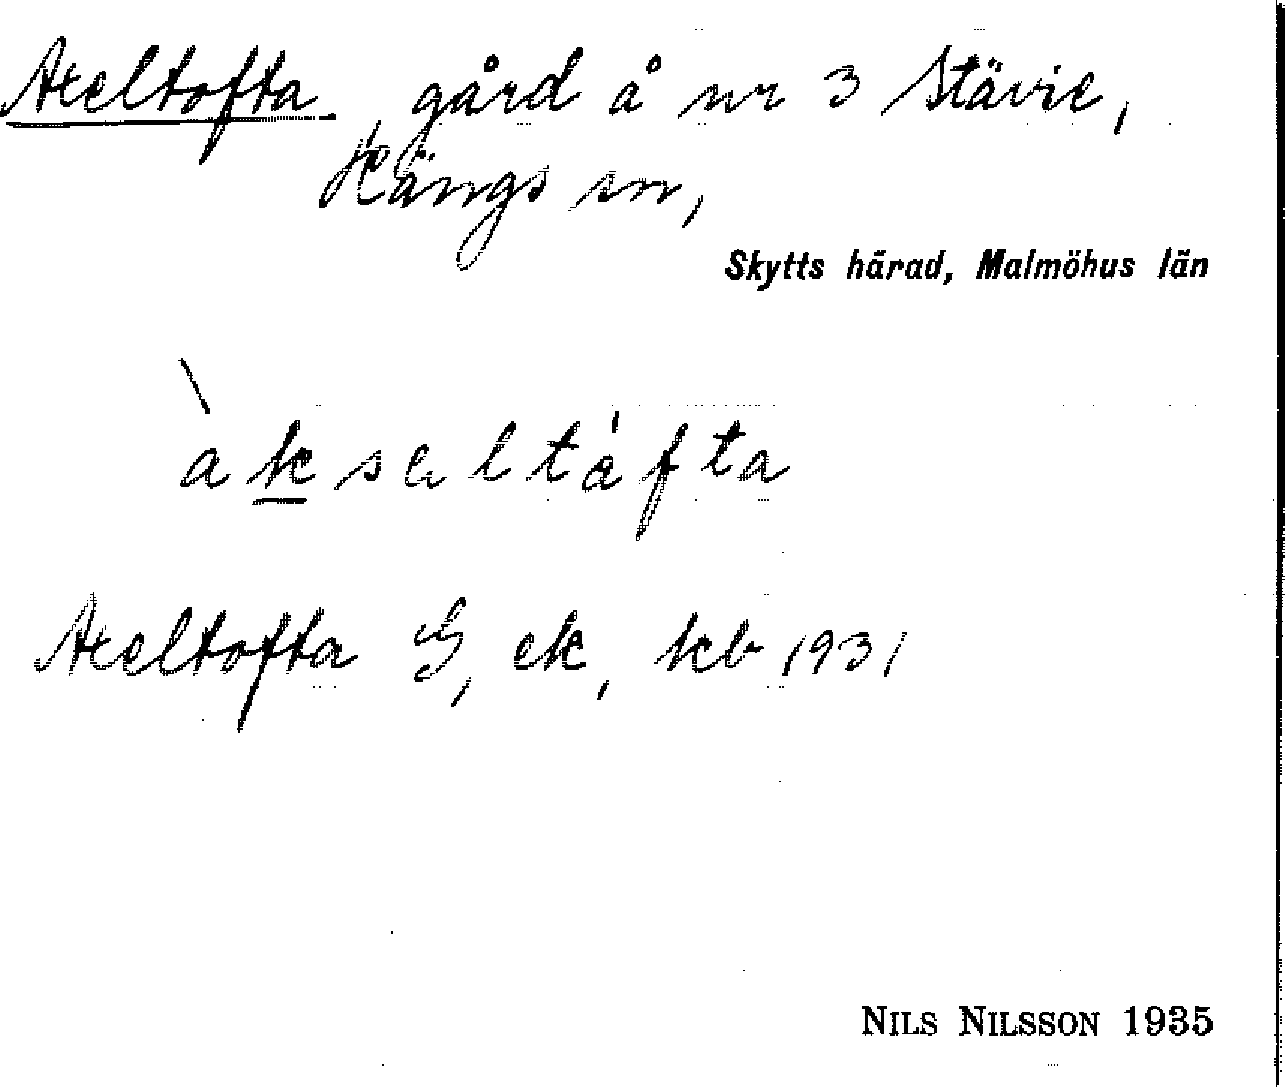 Axeltofta, gård å nr 3 Stävie,
Hängs sn,
Skytts härad, Malmöhus län
àkseltåfta
Axeltofta G, ek, kb 1931
NILS NILSSON 1935